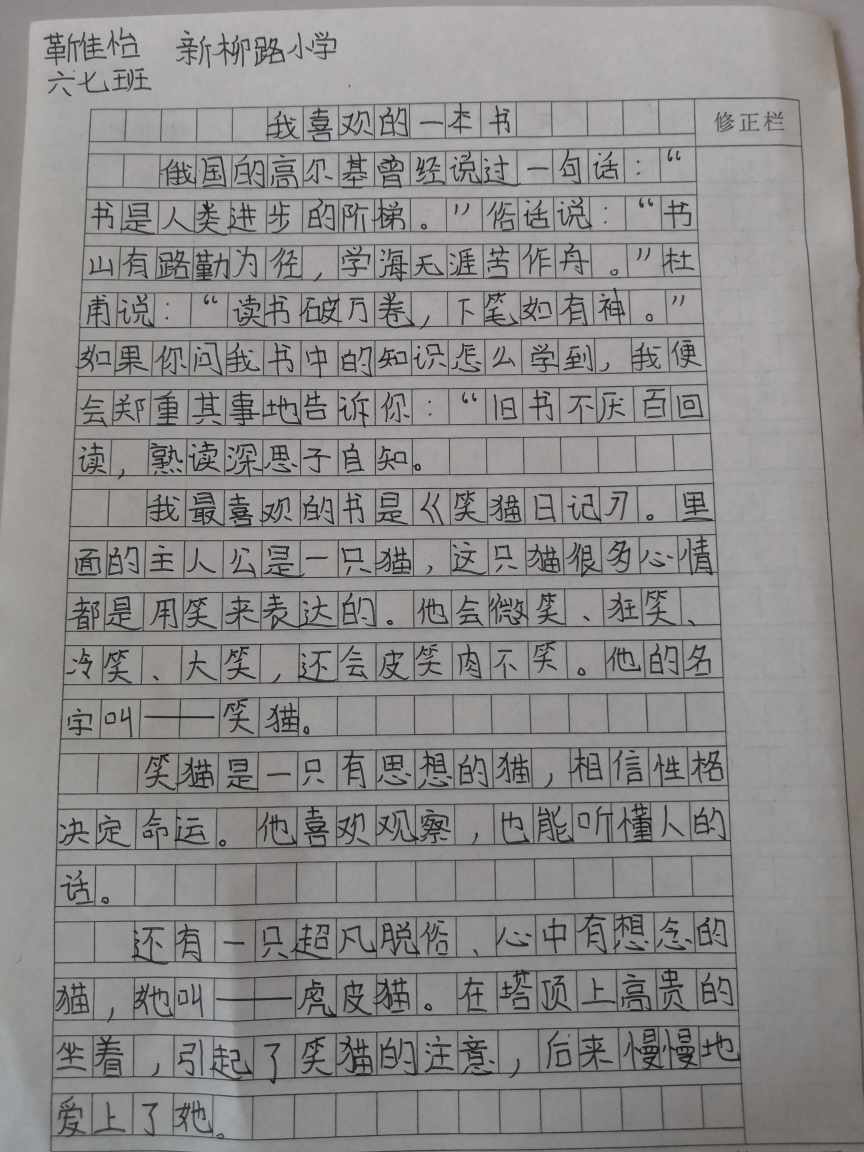 靳佳怡 新柳路小学
六七班
修正栏
我喜欢的一本书
俄国的高尔基曾经说过一句话：“
书是人类进步的阶梯。”俗话说：“书
山有路勤为径，学海无涯苦作舟。”杜
甫说：“读书破万卷，下笔如有神。”
如果你问我书中的知识怎么学到，我便
会郑重其事地告诉你：“旧书不厌百回
读，熟读深思子自知。
我最喜欢的书是《笑猫日记》。里
面的主人公是一只猫，这只猫很多心情
都是用笑来表达的。他会微笑、狂笑、
冷笑、大笑，还会皮笑肉不笑。他的名
字叫——笑猫。
笑猫是一只有思想的猫，相信性格
决定命运。他喜欢观察，也能听懂人的
话。
还有一只超凡脱俗、心中有想念的
猫，她叫——虎皮猫。在塔顶上高贵的
坐着，引起了笑猫的注意，后来慢慢地
爱上了她。